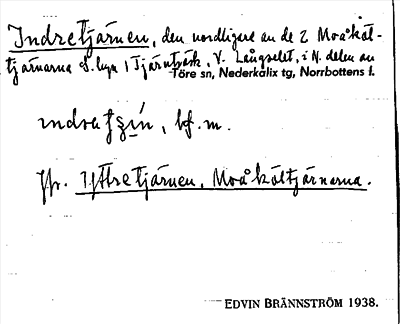 Indretjärnen, den nordligare av de 2 Moåkäl-
tjärnarna S. byn i Tjärnträsk, V. Långselet, i N. delen av
Töre sn, Nederkalix tg, Norrbottens l.
bf. m.
Jfr. Yttretjärnen, Moåkältjärnarna.
EDVIN BRÄNNSTRÖM 1938.